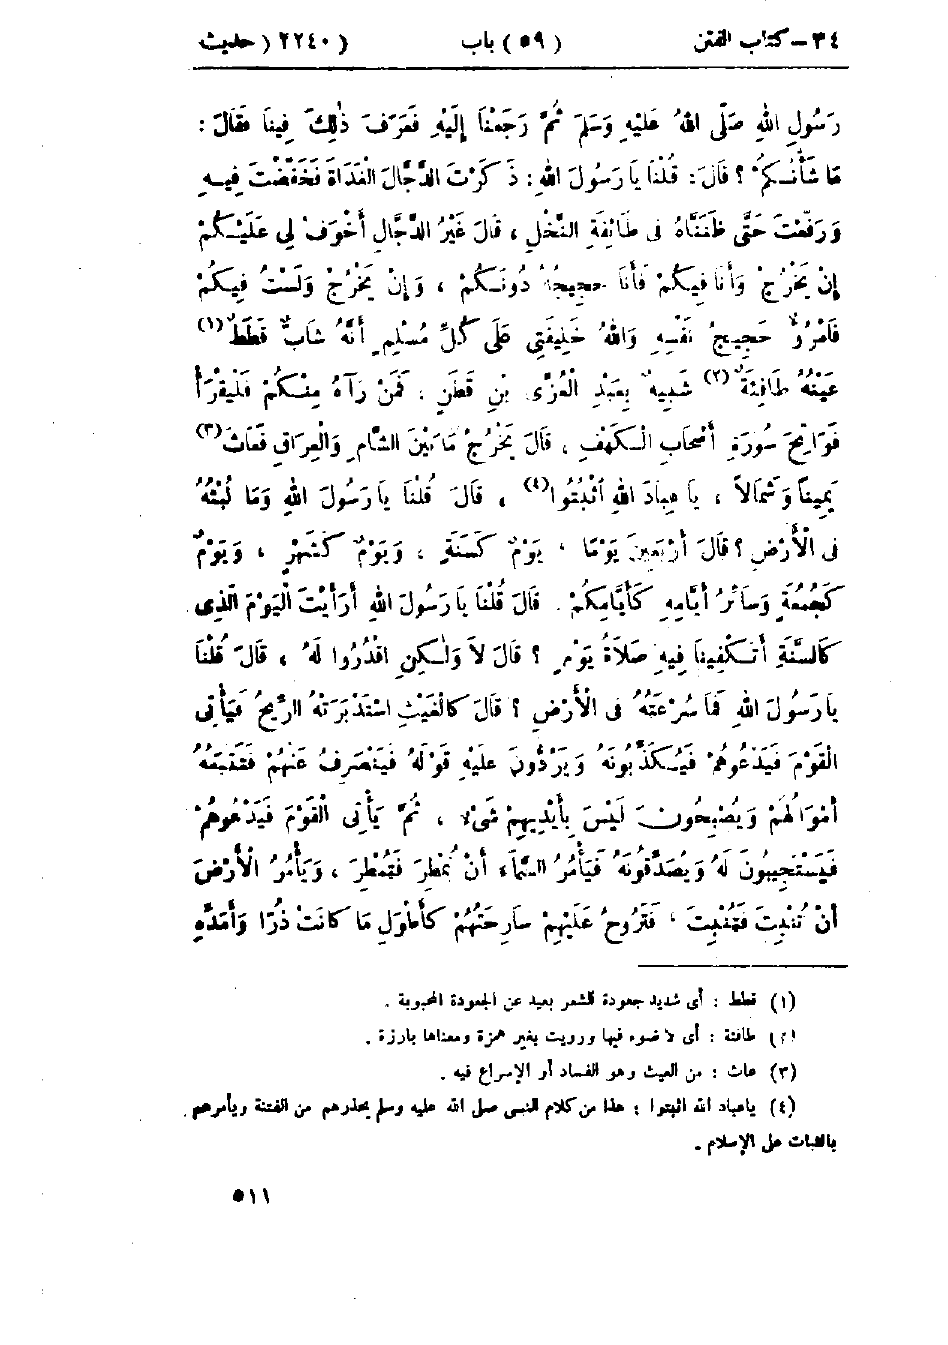 ٣٤ – كتاب الفتن (٥٩) باب (٢٢٤٠) حديث
رَسُولِ اللهِ صَلَّى اللهُ عَلَيْهِ وَسَلَّمَ ثُمَّ رَجَعْنَا إِلَيْهِ فَعَرَفَ ذٰلِكَ فِينَا فَقَالَ :
مَا شَأْنُكُمْ ؟ قَالَ : قُلْنَا يَا رَسُولَ اللهِ : ذَكَرْتَ الدَّجَّالَ الْغَدَاةَ فَخَفَّضْتَ فِيهِ
وَرَفَّعْتَ حَتَّى ظَنَنَّاهُ فِى طَائِفَةِ النَّخْلِ ، قَالَ غَيْرُ الدَّجَّالِ أَخْوَفُ لِى عَلَيْكُمْ
إِنْ يَخْرُجْ وَأَنَا فِيكُمْ فَأَنَا حَجِيجُهُ دُونَكُمْ ، وَإِنْ يَخْرُجْ وَلَسْتُ فِيكُمْ
فَامْرُؤٌ حَجِيجُ نَفْسِهِ وَاللهُ خَلِيفَتِى عَلَى كُلِّ مُسْلِمٍ أَنَّهُ شَابٌّ قَطَطٌ (١)
عَيْنُهُ طَافِئَةٌ (٢) شَبِيهٌ بِعَبْدِ الْعُزَّى بْنِ قَطَنٍ ، فَمَنْ رَآهُ مِنْكُمْ فَلْيَقْرَأْ
فَوَاتِحَ سُورَةِ أَصْحَابِ الْكَهْفِ ، قَالَ يَخْرُجُ مَا بَيْنَ الشَّامِ وَالْعِرَاقِ فَعَاثَ (٣)
يَمِينًا وَشَمَالاً ، يَا عِبَادَ اللهِ اثْبُتُوا (٤) ، قَالَ قُلْنَا يَا رَسُولَ اللهِ وَمَا لُبْثُهُ
فِى الْأَرْضِ ؟ قَالَ أَرْبَعِينَ يَوْمًا ، يَوْمٌ كَسَنَةٍ ، وَيَوْمٌ كَشَهْرٍ ، وَيَوْمٌ
كَجُمُعَةٍ وَسَائِرُ أَيَّامِهِ كَأَيَّامِكُمْ . قَالَ قُلْنَا يَا رَسُولَ اللهِ أَرَأَيْتَ الْيَوْمَ الَّذِى
كَالسَّنَةِ أَتَكْفِينَا فِيهِ صَلَاةُ يَوْمٍ ؟ قَالَ لاَ وَلٰكِنِ اقْدُرُوا لَهُ ، قَالَ قُلْنَا
يَا رَسُولَ اللهِ فَمَا سُرْعَتُهُ فِى الْأَرْضِ ؟ قَالَ كَالْغَيْثِ اسْتَدْبَرَتْهُ الرِّيحُ فَيَأْتِى
الْقَوْمَ فَيَدْعُوهُمْ فَيُكَذِّبُونَهُ وَيَرُدُّونَ عَلَيْهِ قَوْلَهُ فَيَنْصَرِفُ عَنْهُمْ فَتَتْبَعُهُ
أَمْوَالُهُمْ وَيُصْبِحُونَ لَيْسَ بِأَيْدِيهِمْ شَىْءٌ ، ثُمَّ يَأْتِى الْقَوْمَ فَيَدْعُوهُمْ
فَيَسْتَجِيبُونَ لَهُ وَيُصَدِّقُونَهُ فَيَأْمُرُ السَّمَاءَ أَنْ تُمْطِرَ فَتُمْطِرَ ، وَيَأْمُرُ الْأَرْضَ
أَنْ تُنْبِتَ فَتُنْبِتَ ، فَتَرُوحُ عَلَيْهِمْ سَارِحَتُهُمْ كَأَطْوَلِ مَا كَانَتْ ذُرًا وَأَمَدِّهِ
(١) قطط : أى شديد جعودة الشعر بعيد عن الجعودة المحبوبة .
(٢) طافئة : أى لا ضوء فيها ورويت بغير همزة ومعناها بارزة .
(٣) عاث : من العيث وهو الفساد أو الإسراع فيه .
(٤) ياعباد الله اثبتوا : هذا من كلام النبى صلى الله عليه وسلم يحذرهم من الفتنة ويأمرهم
بالثبات على الإسلام .
٥١١